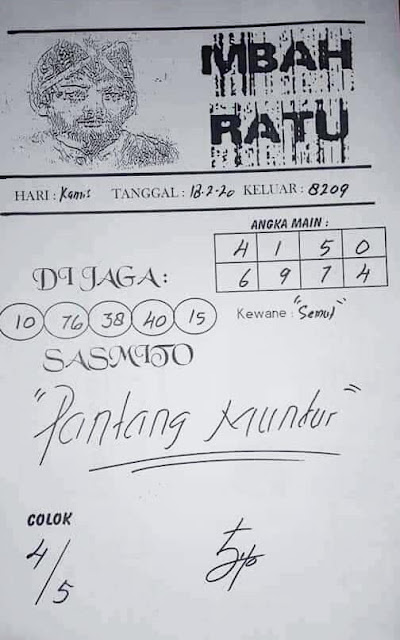 MBAH
RATU
HARI : Kamis TANGGAL : 13-2-20 KELUAR : 8209
ANGKA MAIN :
4 1 5 0
6 9 7 4
DI JAGA :
10 76 38 40 15
Kewane : "Semut"
SASMITO
"Pantang Muntur"
COLOK
4/5